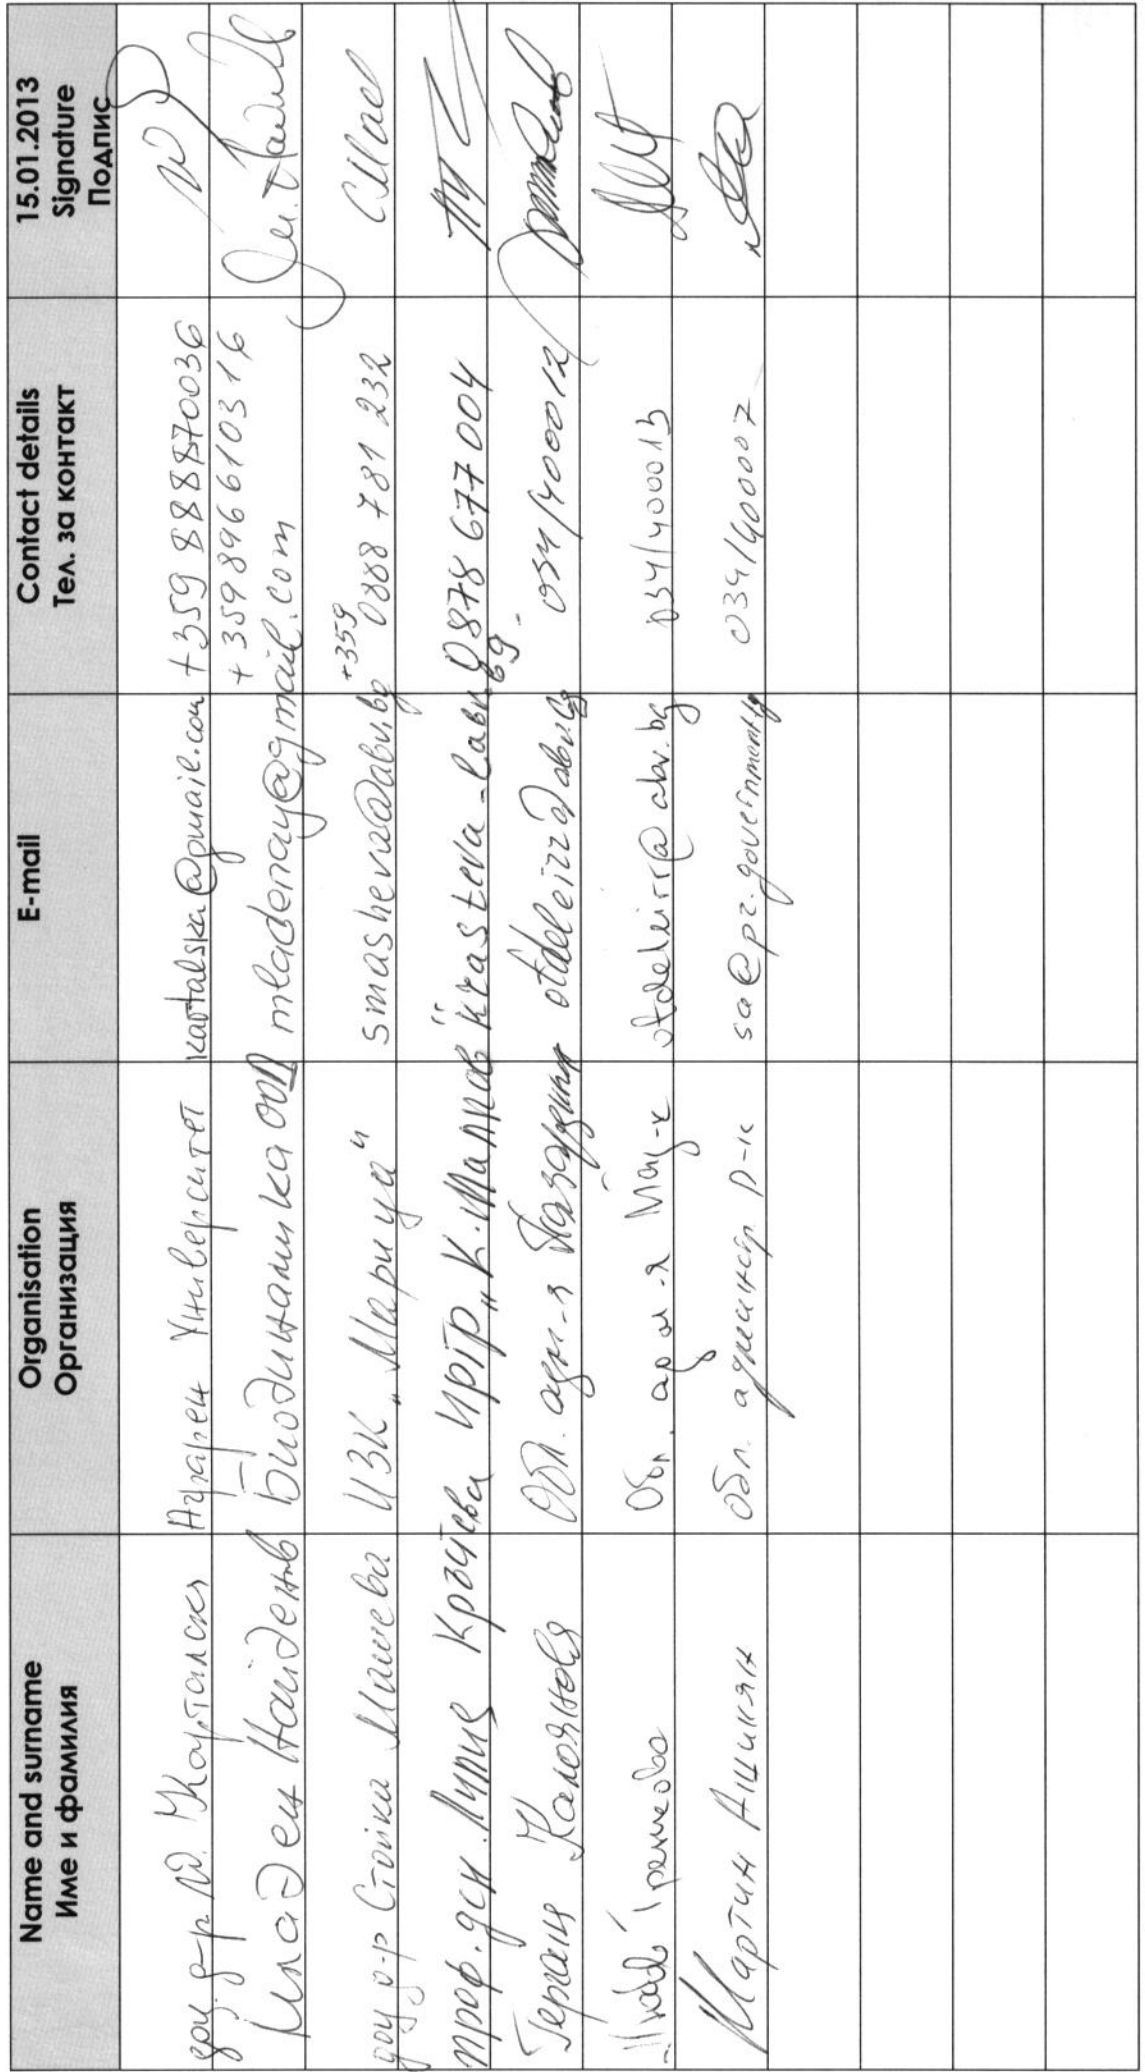 Name and surname
Име и фамилия
Organisation
Организация
E-mail
Contact details
Тел. за контакт
15.01.2013
Signature
Подпис
доц. д-р Карталска Аграрен Университет kartalska@gmail.com +359 888870036
Младен Найденов Биодинамика ООД mladenay@gmail.com +359896610316
доц д-р Стойка Машева ИЗК „Марица“ smasheva@abv.bg +359 0888 781 232
проф. дсн. Лилия Кръстева ИРГР „К. Малков“ krasteva-l abv.bg 0878 677004
Гергана Калоянова Обл. адм-я Пазарджик otdeleirr@abv.bg 034/400012
Обл. адм-я otdeleirr@abv.bg 034/400013
Мартин Ашикян Обл. администр. П-к sa@pz.government.bg 034/400007